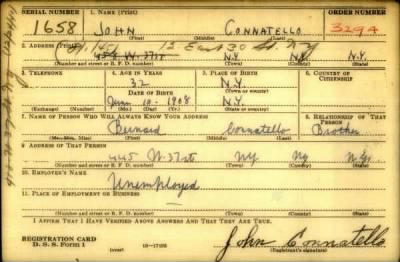 SERIAL NUMBER 1. NAME (Print) ORDER NUMBER
1658 JOHN CONNATELLO 3294
(First) (Middle) (Last)
2. ADDRESS (Print)
12 East 30 St. NY
W. 37st N.Y. N.Y.
(Number and street or R. F. D. number) (Town) (County) (State)
3. TELEPHONE 4. AGE IN YEARS 5. PLACE OF BIRTH 6. COUNTRY OF CITIZENSHIP
32 N.Y.
DATE OF BIRTH (Town or county)
June 10 - 1908 N.Y.
(Exchange) (Number) (Mo.) (Day) (Yr.) (State or country)
7. NAME OF PERSON WHO WILL ALWAYS KNOW YOUR ADDRESS 8. RELATIONSHIP OF THAT PERSON
Bernard Connatello Brother
(Mr., Mrs., Miss) (First) (Middle) (Last)
9. ADDRESS OF THAT PERSON
445 W 37st NY NY N.Y.
(Number and street or R. F. D. number) (Town) (County) (State)
10. EMPLOYER'S NAME
Unemployed
11. PLACE OF EMPLOYMENT OR BUSINESS
(Number and street or R. F. D. number) (Town) (County) (State)
I AFFIRM THAT I HAVE VERIFIED ABOVE ANSWERS AND THAT THEY ARE TRUE.
REGISTRATION CARD
D. S. S. Form 1 (over) 16-17105 John Connatello
(Registrant's signature)